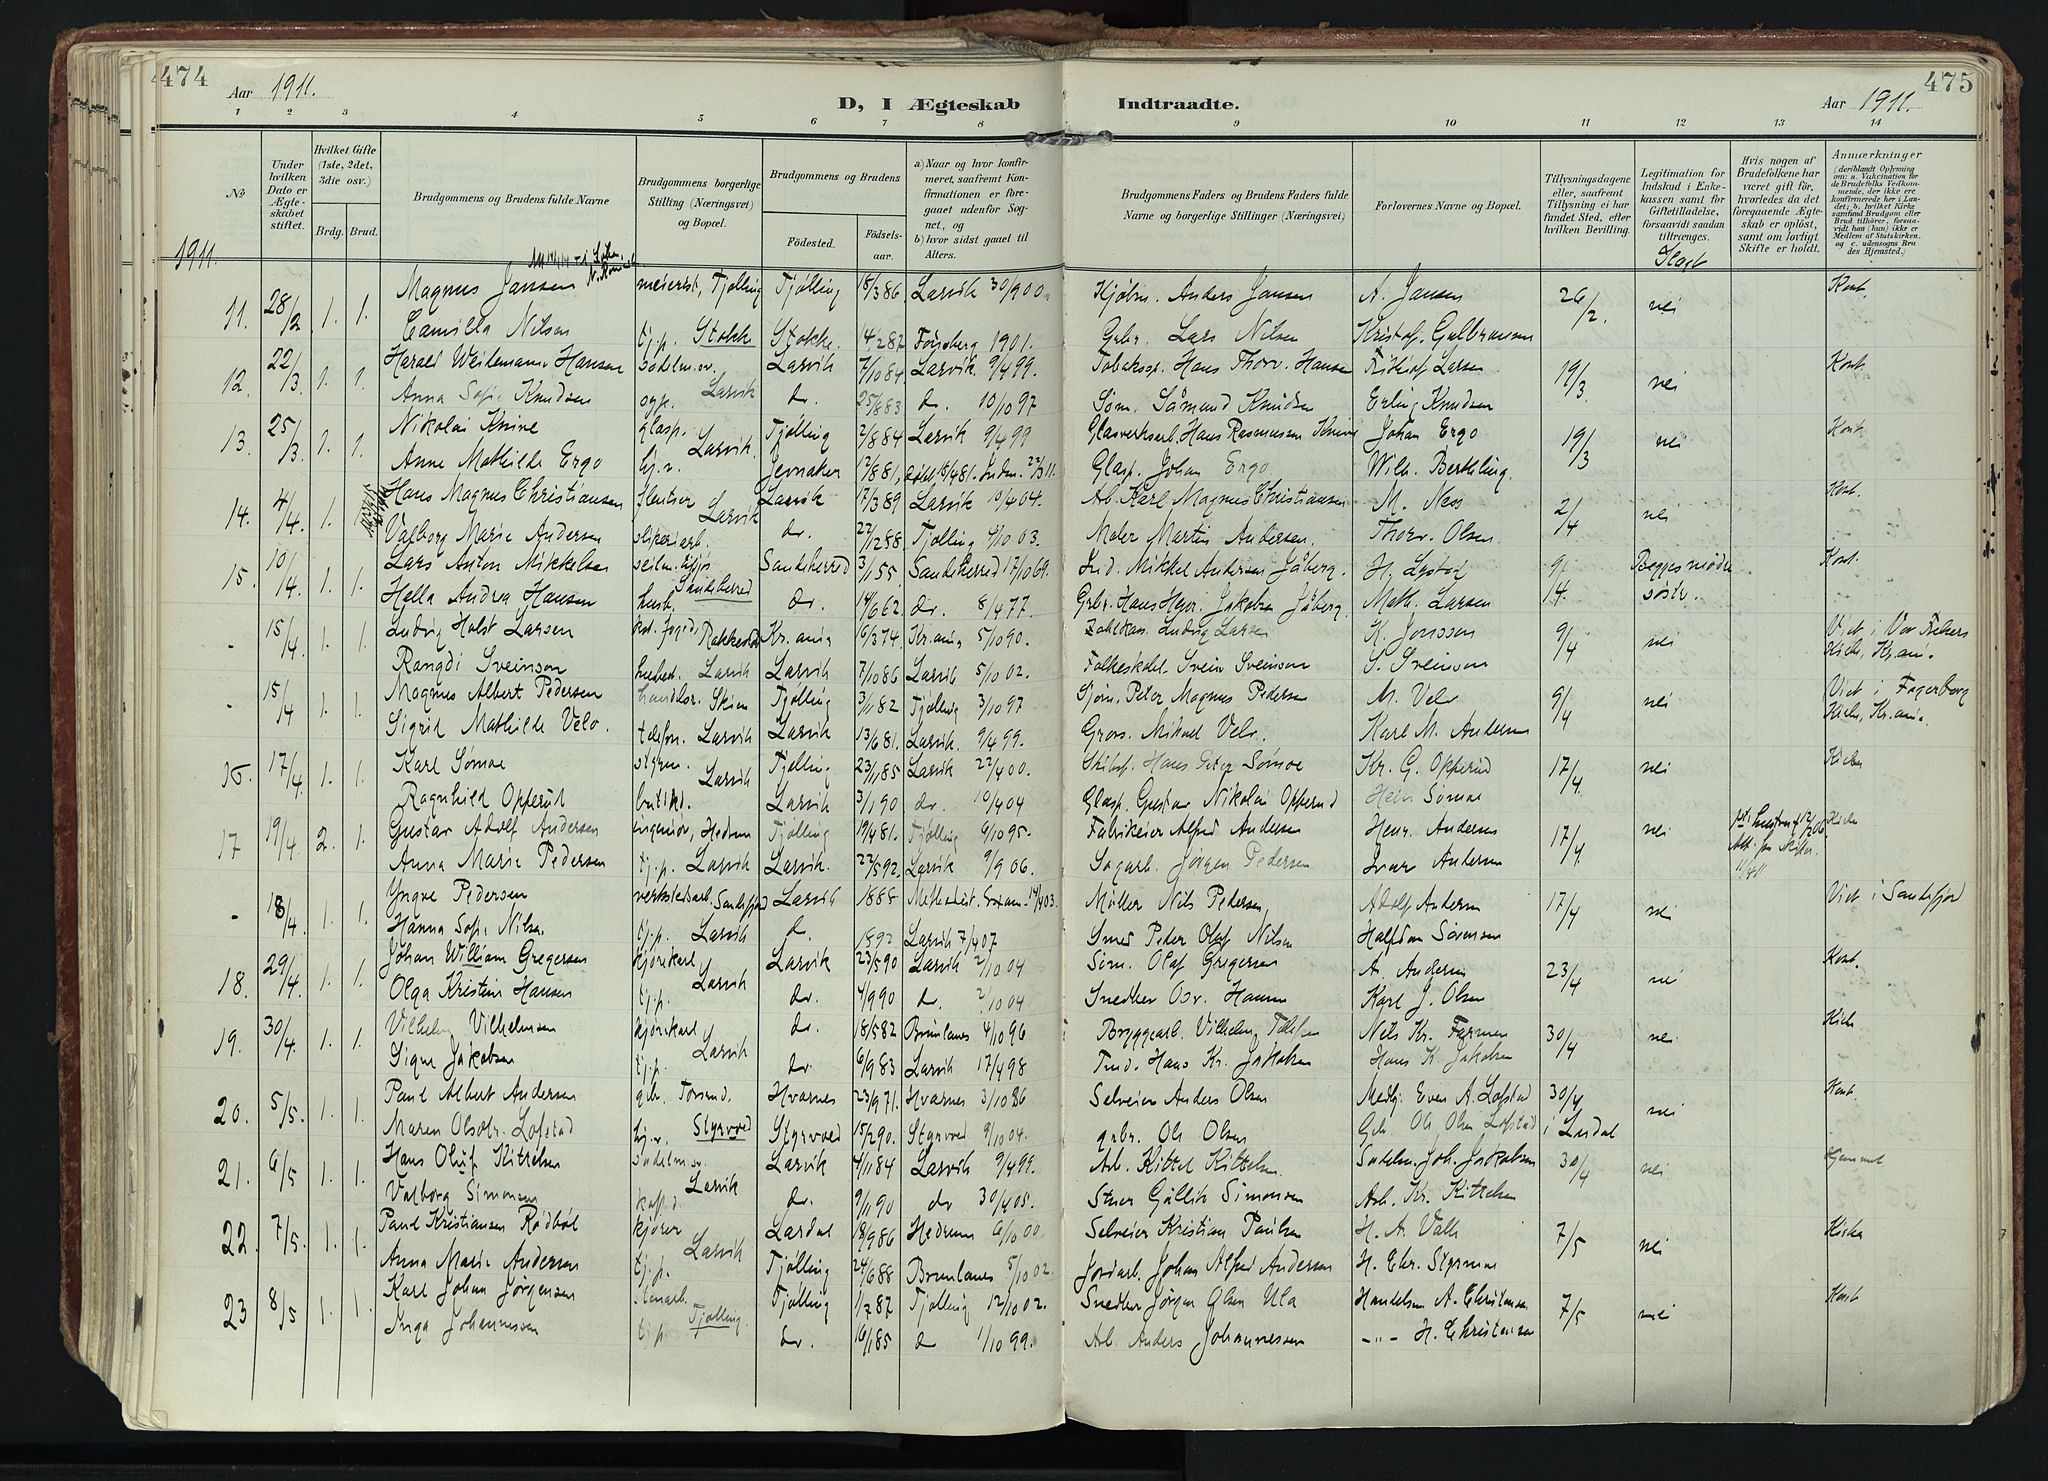 474
Aar 1911.
D, I Ægteskab
Indtraadte.
Aar 1911.
475
1 2 3 4 5 6 7 8 9 10 11 12 13 14
№
Under hvilken Dato er Ægteskabet stiftet.
Hvilket Gifte (1ste, 2det, 3die osv.)
Brdg. Brud.
Brudgommens og Brudens fulde Navne
Brudgommens borgerlige Stilling (Næringsvei) og Bopæl.
Brudgommens og Brudens
Födested.
Födselsaar.
a) Naar og hvor konfirmeret, saafremt Konfirmationen er foregaaet udenfor Sognet, og
b) hvor sidst gaaet til Alters.
Brudgommens Faders og Brudens Faders fulde Navne og borgerlige Stillinger (Næringsvei)
Forlovernes Navne og Bopæl.
Tillysningsdagene eller, saafremt Tillysning ei har fundet Sted, efter hvilken Bevilling.
Legitimation for Indskud i Enkekassen samt for Giftetilladelse, forsaavidt saadan tiltrænges.
Hvis nogen af Brudefolkene har været gift för, hvorledes da det foregaaende Ægteskab er oplöst, samt om lovligt Skifte er holdt.
Anmærkninger
(deriblandt Oplysning om: a. Vaccination for de Brudefolks Vedkommende, der ikke ere konfirmerede her i Landet; b. hvilket Kirkesamfund Brudgom eller Brud tilhörer, forsaavidt han (hun) ikke er Medlem af Statskirken, og c. udensogns Brudes Hjemsted.
1911.
11. 28/2 1. 1. Magnus Jansen meierist, Tjølling Tjølling 18/3 86 Larvik 30/9 00. Kjøbm. Anders Jansen A. Jansen 26/2. nei Kont.
Camilla Nilsen tj.p. Stokke Stokke. 4/2 87 1901. Grbr. Lars Nilsen Kristof. Gulbransen
12. 22/3 1. 1. Harald Weidemann Hansen sadelm.sv. Larvik Larvik 7/10 84 Larvik 9/4 99. Tobakssp. Hans Thorv. Hansen Fridtjof Larsen 19/3 nei Kont.
Anna Sofie Knudsen opp. do. 25/8 83 do. 10/10 97 Søm. Sămund Knudsen Erling Knudsen
13. 25/3 1. 1. Nikolai Knive glasp. Larvik. Tjølling 2/8 84 Larvik 9/4 99 Glasverksarb. Hans Rasmussen Knive Johan Ergo 19/3 nei Kont.
Anne Mathilde Ergo hj.v. Jevnaker 17/8 81, Glasp. Johan Ergo Wilh. Berthling.
14. 4/4 1. Hans Magnus Christiansen Larvik Larvik 17/3 89 Larvik 10/4 04. Arb. Karl Magnus Christiansen M. Næs 2/4 nei Kont.
Valborg Marie Andersen sliperiarb. do. 22/12 88. Tjølling 4/10 03. Maler Martin Andersen. Thorv. Olsen
15. 10/4 1. 1. Lars Anton Mikkelsen seilm. Sandeherred Sandeherred 3/1 55 Sandeherred 17/10 69. Ind. Mikkel Andersen Jåberg. H. Lystad 9/4. Begges mødre søstr. Kont.
Hella Andrea Hansen husb. do. 14/6 62 do. 8/4 77. Grbr. Hans Henr. Jakobsen Jåberg. Math. Larsen
- 15/4 1. 1 Ludvig Holst Larsen Rakkestad Kr.ania 16/3 74 Kr.ania 5/10 90. Ludvig Larsen K. Jonssen 9/4 nei Viet i Vor Frelsers Kirke, Kr.ania.
Rangdi Sveinson husbest. Larvik Larvik 7/10 86 Larvik 5/10 02. Folkeskolel. Svein Sveinson S. Sveinson
- 15/4 1. 1. Magnus Albert Pedersen handler. Skien Tjølling 3/11 82 Tjølling 3/10 97 Sjøm. Peter Magnus Pedersen M. Velo 9/4 nei Viet i Fagerborg Kirke, Kr.ania.
Sigrid Mathilde Velo. telefon. Larvik Larvik 13/6 81. Larvik. 9/4 99. Gros. Mikael Velo. Karl M. Andersen
16. 17/4 1. 1. Karl Sømoe styrm. Larvik Tjølling 23/11 85 Larvik 22/4 00. Skibsf. Hans Peter Sømoe Kr. G. Opperud 17/4 nei Kirken
Ragnhild Opperud butikd. Larvik 3/1 90 do. 10/4 04 Glasp. Gustav Nikolai Opperud Hein Sømoe
17 19/4 2. 1. Gustav Adolf Andersen ingeniør, Hedrum Tjølling 19/4 81. Tjølling 6/10 95. Fabrikeier Alfred Andersen Henr. Andersen 17/4 nei
Anna Marie Pedersen tj.p. Larvik Larvik. 22/5 92. Larvik 9/9 06. Sagarb. Jørgen Pedersen Ivar Andersen
- 18/4 1. 1. Yngve Pedersen verkstedsarb. Sandefjord Larvik 1888 Methodist. Møller Nils Pedersen Adolf Andersen 17/4 nei Viet i Sandefjord
Hanna Sofie Nilsen tj.p. Larvik do. 1892 Larvik 7/4 07 Smed Peter Olaf Nilsen Halfdan Sørensen
18. 29/4 1. 1. Johan William Gregersen kjørekarl Larvik Larvik 23/5 90 Larvik 2/10 04 Søm. Olaf Gregersen A. Andersen 23/4 nei Kont.
Olga Kristine Hansen tj.p. do. 4/9 90 do. 2/10 04 Snedker Osv. Hansen Karl J. Olsen
19. 30/4. 1. 1. Vilhelm Vilhelmsen kjørekarl Larvik do. 18/5 82 Brunlanes 4/10 96 Bryggearb. Vilhelm Nils Kr. Farmen 30/4 nei Kirke
Signe Jakobsen tj.p. do. 6/9 83 Larvik 17/4 98 Hans Kr. Jakobsen Hans K. Jakobsen
20. 5/5. 1. 1. Paul Albert Andersen gbr. Torsrud. Hvarnes 23/9 71. Hvarnes 3/10 86 Selveier Anders Olsen Medhj. Even A. Lofstad 30/4 i Lardal nei Kont.
Maren Olsdtr. Lofstad hj.v. Styrvold Styrvold 15/2 90. Styrvold 9/10 04. grbr. Ole Olsen Gbr. Ole Olsen Lofstad
21. 6/5 1. 1. Hans Oluf Kittelsen sadelm.sv. Larvik Larvik 4/11 84 Larvik 9/4 99. Arb. Kittel Kittelsen Sadelm. Joh. Jakobsen 30/4 nei Hjemmet
Valborg Simonsen do. 9/11 90 do 30/4 05. Stuer Gullik Simonsen Arb. Kr. Kittelsen
22. 7/5. 1. 1. Paul Kristiansen Rødbøl kjører Larvik Lardal 18/9 86 Hedrum 6/10 00 Selveier Kristian Paulsen H. A. Valle 7/5 nei Kirke
Anna Marie Andersen tj.p. Tjølling 24/6 88 Brunlanes 5/10 02. Jordarb. Johan Alfred Andersen H. Chr. Styrmoe
23 8/5 1. 1. Karl Johan Jørgensen stenarb. Tjølling. Tjølling 1/7 87 Tjølling 12/10 02. Snedker Jørgen Olsen Ula Handelsm. A. Christensen 7/5 nei Kont
Inga Johannessen tj.p do. 16/1 85 do 1/10 99. Arb. Anders Johannessen -"- H. Christensen